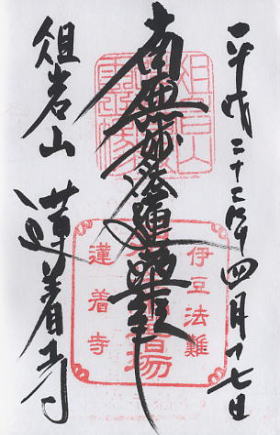 平成二十二年四月十七日
南無妙法蓮華経
俎岩山
蓮着寺
伊豆法難
場
蓮着寺